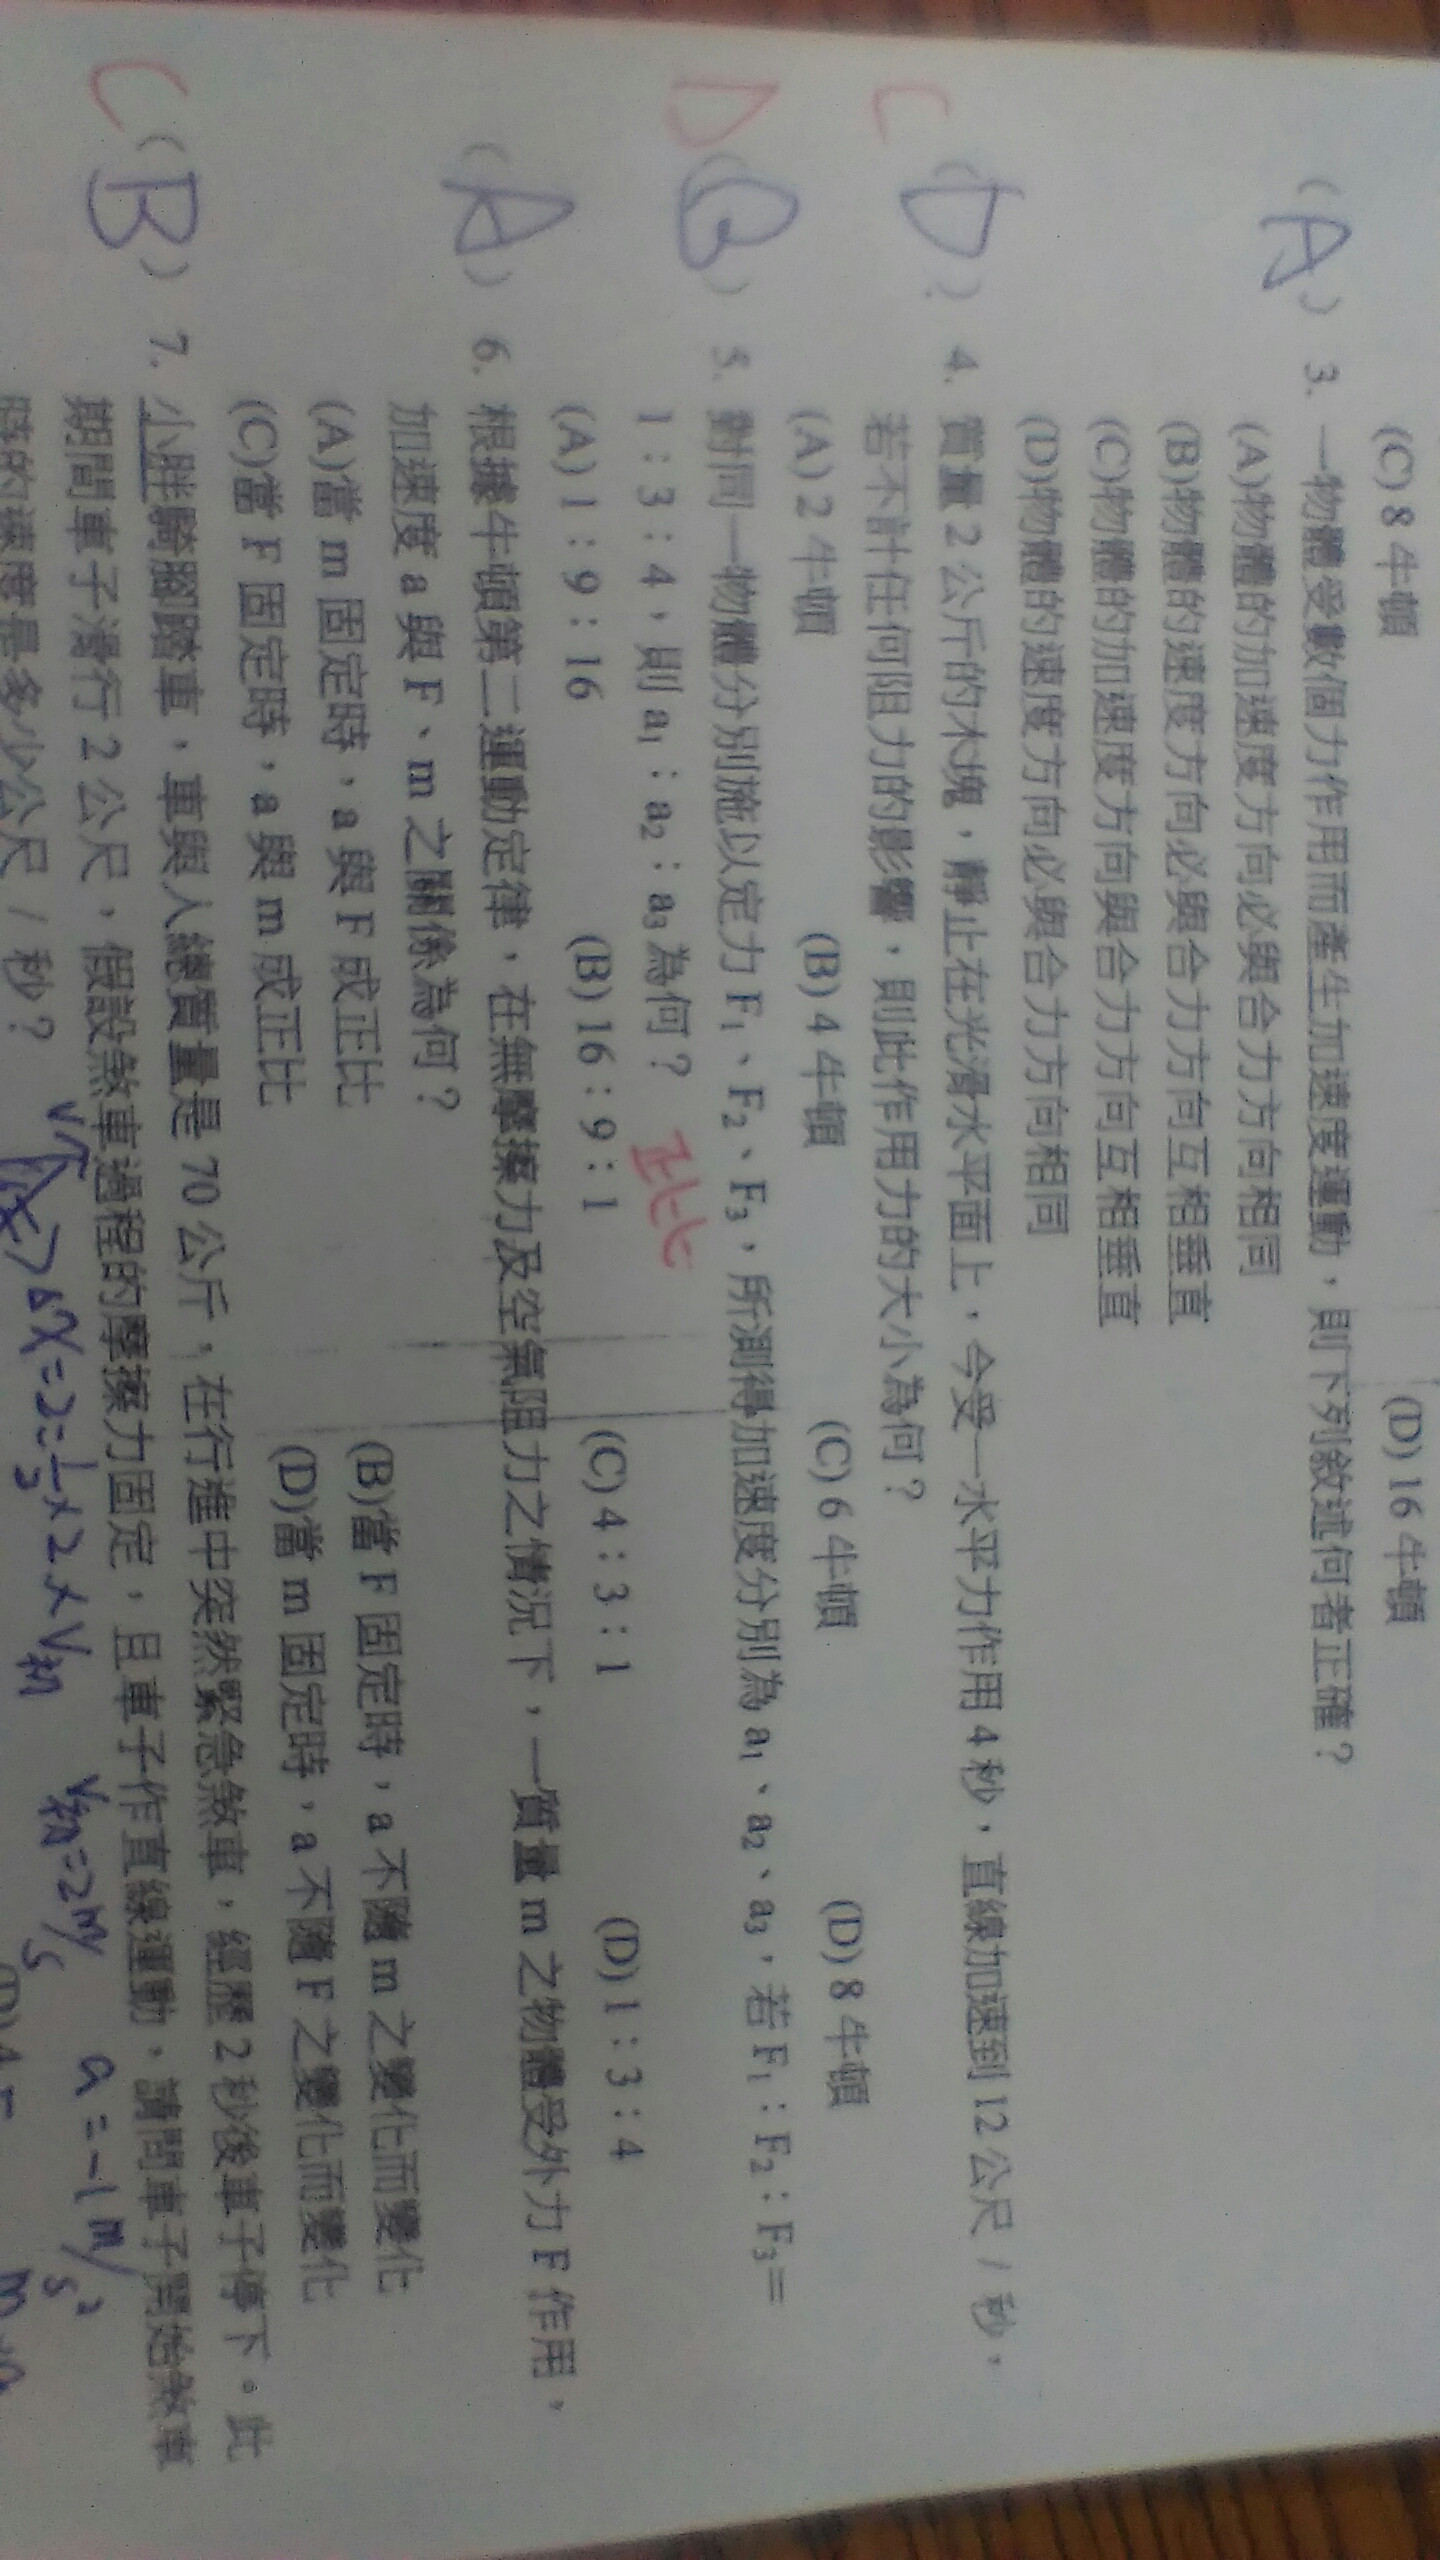 (C) 8 牛頓 (D) 16 牛頓
( A ) 3. 一物體受數個力作用而產生加速度運動，則下列敘述何者正確？
(A)物體的加速度方向必與合力方向相同
(B)物體的速度方向必與合力方向互相垂直
(C)物體的加速度方向與合力方向互相垂直
(D)物體的速度方向必與合力方向相同
C ( D ) 4. 質量 2 公斤的木塊，靜止在光滑水平面上，今受一水平力作用 4 秒，直線加速到 12 公尺 / 秒，
若不計任何阻力的影響，則此作用力的大小為何？
(A) 2 牛頓 (B) 4 牛頓 (C) 6 牛頓 (D) 8 牛頓
D ( B ) 5. 對同一物體分別施以定力 F₁、F₂、F₃，所測得加速度分別為 a₁、a₂、a₃，若 F₁：F₂：F₃＝
1：3：4，則 a₁：a₂：a₃ 為何？ 正比
(A) 1：9：16 (B) 16：9：1 (C) 4：3：1 (D) 1：3：4
( A ) 6. 根據牛頓第二運動定律，在無摩擦力及空氣阻力之情況下，一質量 m 之物體受外力 F 作用，
加速度 a 與 F、m 之關係為何？
(A)當 m 固定時，a 與 F 成正比 (B)當 F 固定時，a 不隨 m 之變化而變化
(C)當 F 固定時，a 與 m 成正比 (D)當 m 固定時，a 不隨 F 之變化而變化
C ( B ) 7. 小胖騎腳踏車，車與人總質量是 70 公斤，在行進中突然緊急煞車，經歷 2 秒後車子停下。此
期間車子滑行 2 公尺，假設煞車過程的摩擦力固定，且車子作直線運動，請問車子開始煞車
時的速度是多少公尺 / 秒？
V
ΔX=2=½×2×V初 V初=2m/s a=-1m/s²